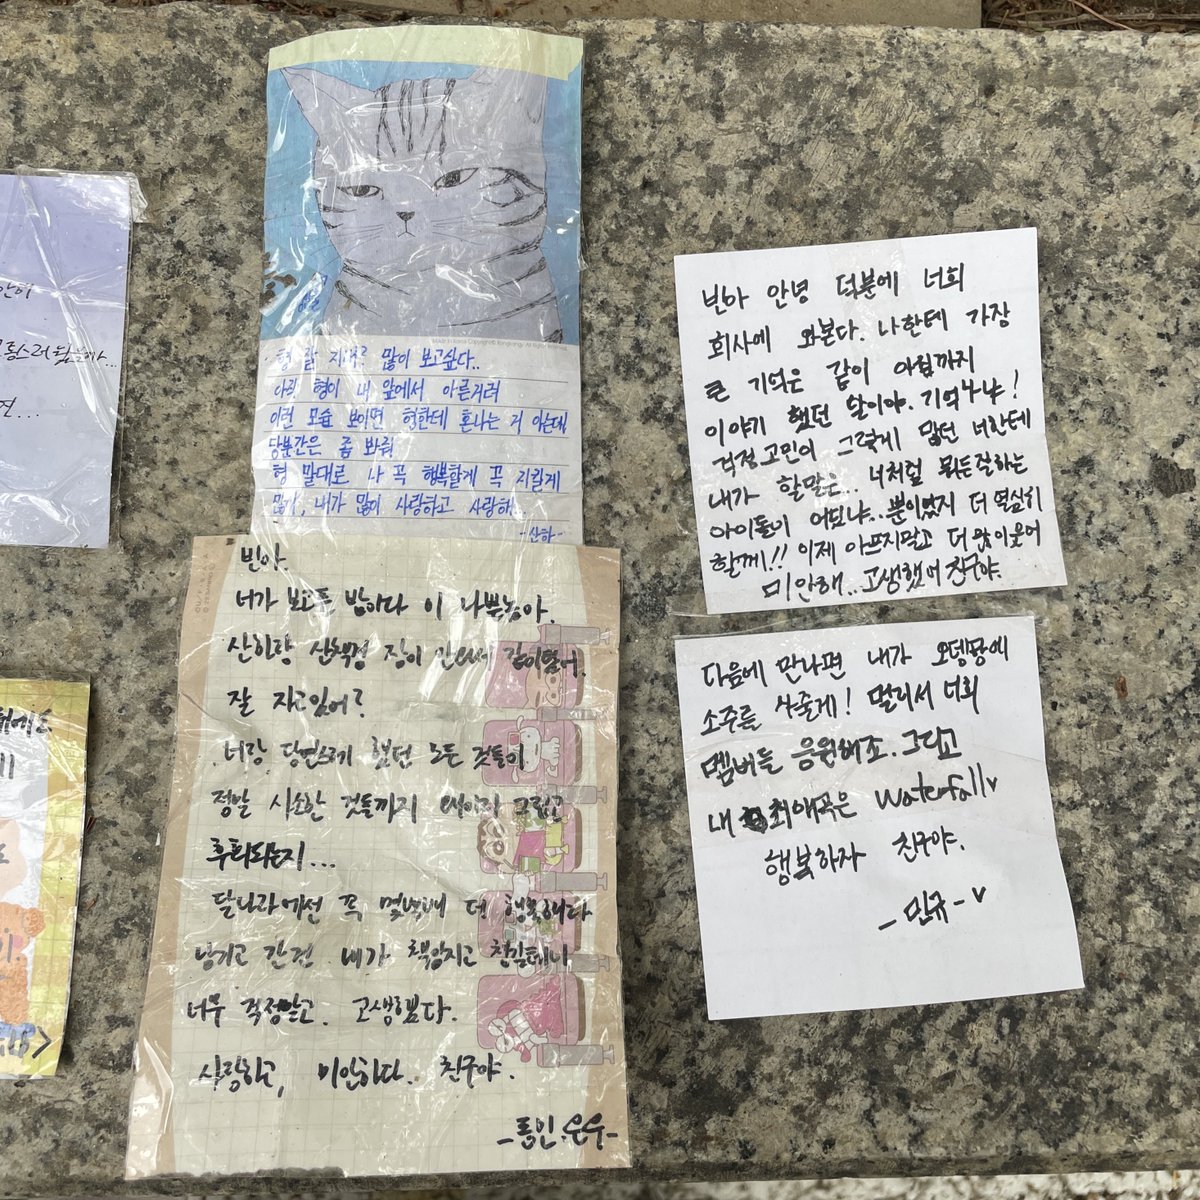 안이
형 잘 지내? 많이 보고싶다..
아직 형이 내 앞에서 아른거려
이런 모습 보이면 형한테 혼나는 거 아는데
당분간은 좀 봐줘
형 말대로 나 꼭 행복할게 꼭 지킬게
많이, 내가 많이 사랑하고 사랑해
-산하-
빈아
너가 보고픈 밤이다 이 나쁜놈아.
산하랑 산책겸 잠이 안와서 같이왔어.
잘 지내고있어?
너랑 당연스레 했던 모든 것들이
정말 시소한 것들까지 왜이리 그립고
후회되는지...
달나라에선 꼭 몇배 더 행복해라
남기고 간건 내가 책임지고 챙길테니
너무 걱정말고. 고생했다.
사랑하고, 미안하다.. 친구야.
-동민.은우-
빈아 안녕 덕분에 너희
회사에 와본다. 나한테 가장
큰 기억은 같이 아침까지
이야기 했던 날이야. 기억나냐!
걱정고민이 그렇게 많던 너한테
내가 할말은.. 너처럼 뭐든잘하는
아이돌이 어딨냐..뿐이었지 더 열심히
할께!! 이제 아프지말고 더 많이웃어
미안해.. 고생했어 친구야.
다음에 만나면 내가 오뎅탕에
소주를 사줄게! 멀리서 너희
멤버들 응원해죠. 그리고
내 최애곡은 Waterfall
행복하자 친구야.
-민규-